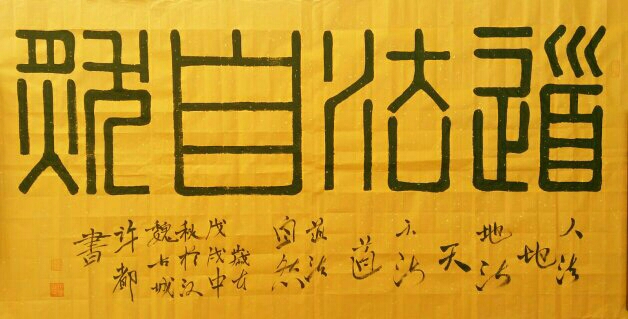 道法自然
人法
地
地法
天
天法
道
道法
自然
歲在
戊戌中
秋於汉
魏古城
许都
書